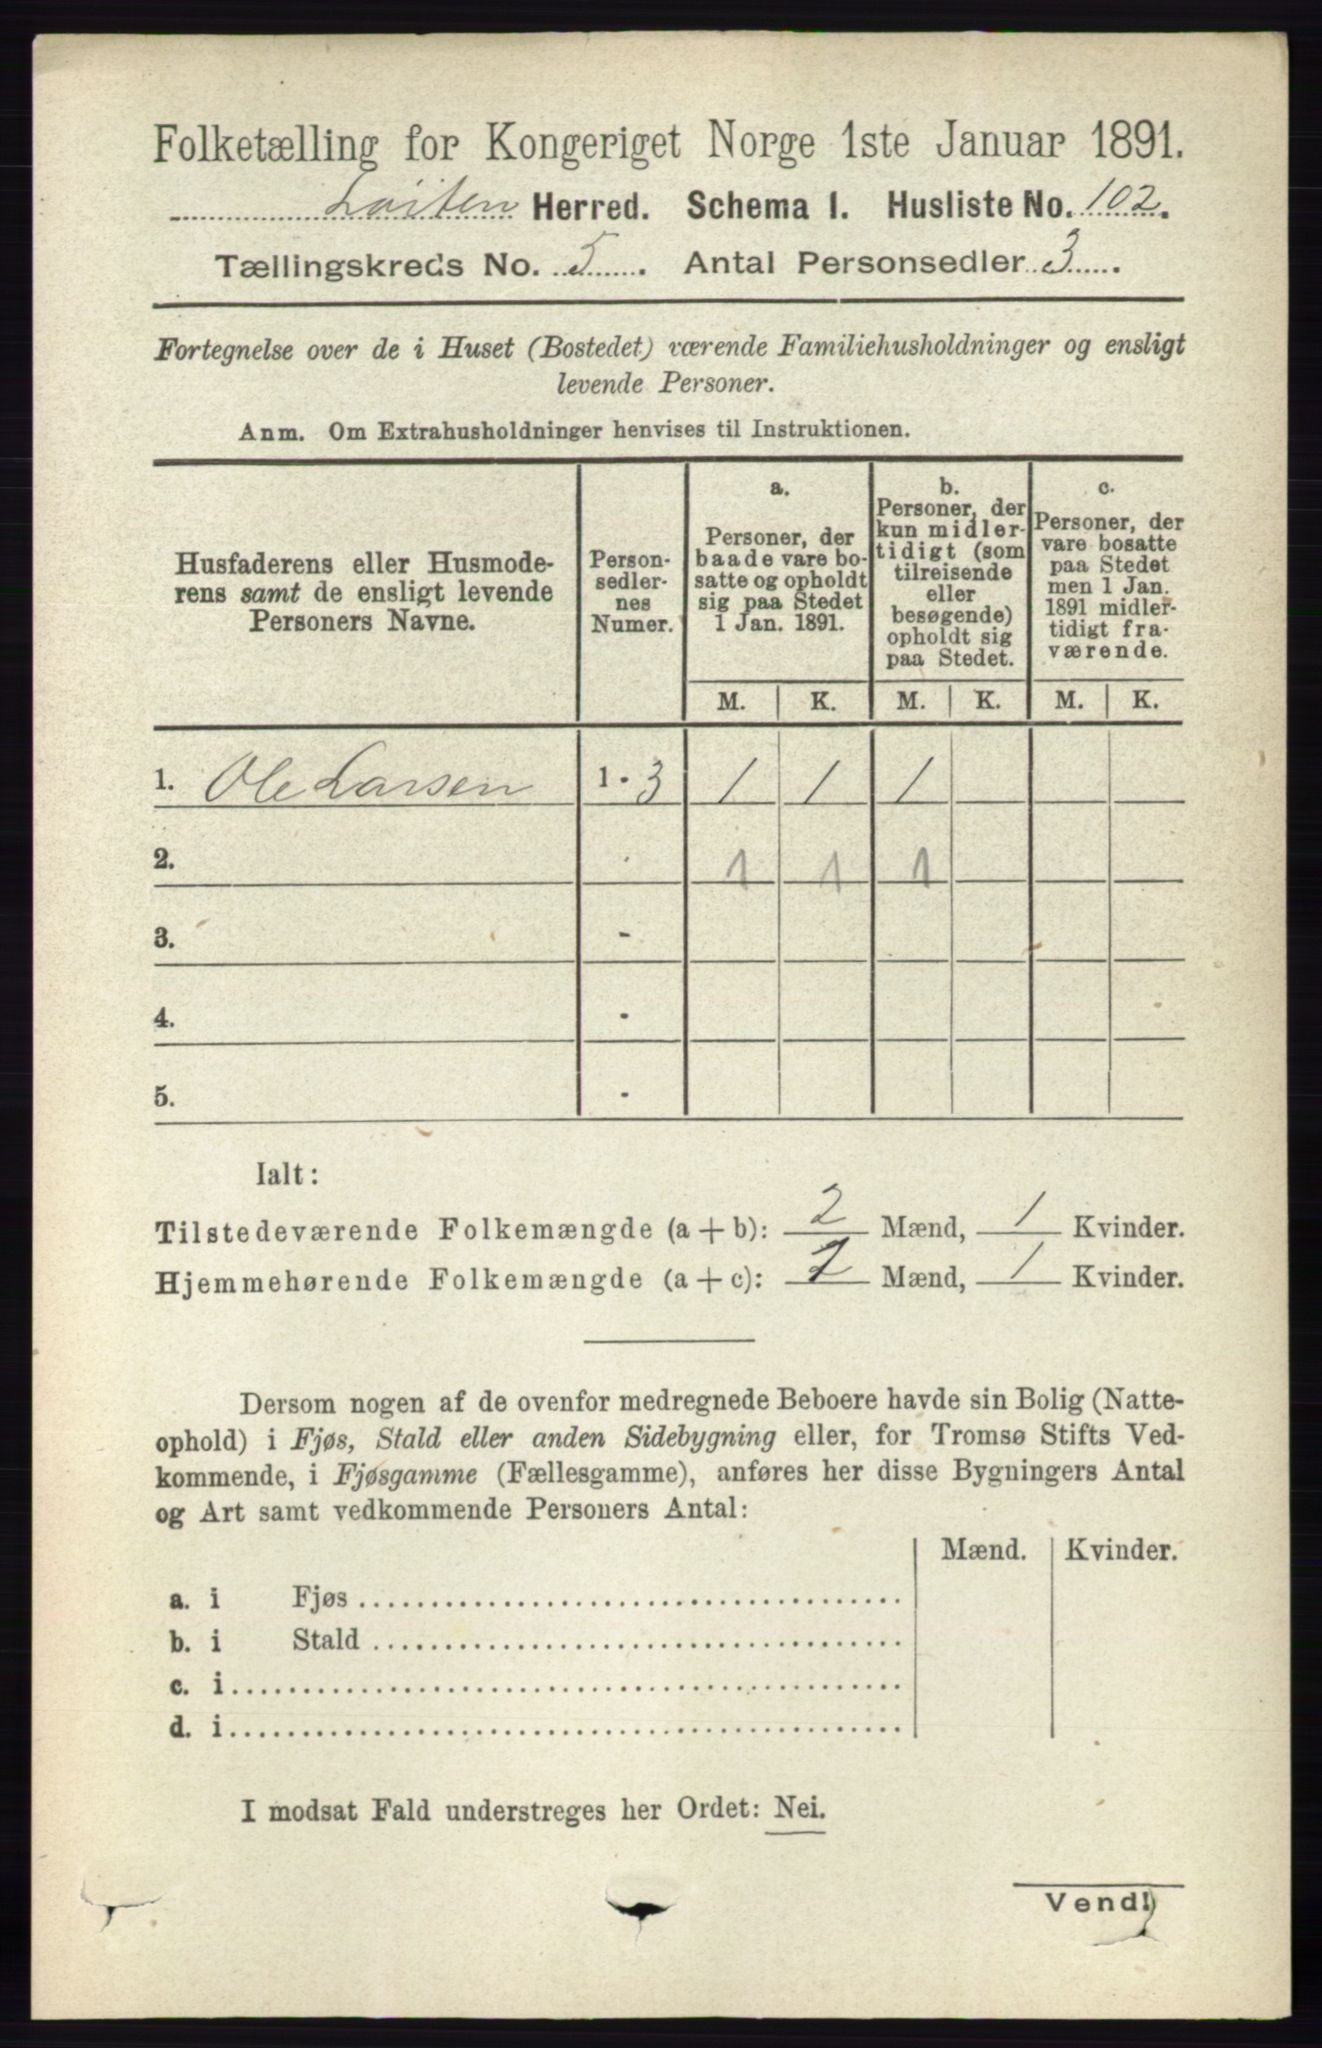 Folketælling for Kongeriget Norge 1ste Januar 1891.
Løiten Herred. Schema I. Husliste No. 102.
Tællingskreds No. 5. Antal Personsedler 3.
Fortegnelse over de i Huset (Bostedet) værende Familiehusholdninger og ensligt
levende Personer.
Anm. Om Extrahusholdninger henvises til Instruktionen.
Husfaderens eller Husmode-
rens samt de ensligt levende
Personers Navne.
Person-
sedler-
nes
Numer.
a.
Personer, der
baade vare bo-
satte og opholdt
sig paa Stedet
1 Jan. 1891.
b.
Personer, der
kun midler-
tidigt (som
tilreisende
eller
besøgende)
opholdt sig
paa Stedet.
c.
Personer, der
vare bosatte
paa Stedet
men 1 Jan.
1891 midler-
tidigt fra-
værende.
M. K. M. K. M. K.
1. Ole Larsen 1 - 3 1 1 1
2. - 1 1 1
3. -
4. -
5. -
Ialt:
Tilstedeværende Folkemængde (a + b): 2 Mænd, 1 Kvinder.
Hjemmehørende Folkemængde (a + c): Mænd, 1 Kvinder.
Dersom nogen af de ovenfor medregnede Beboere havde sin Bolig (Natte-
ophold) i Fjøs, Stald eller anden Sidebygning eller, for Tromsø Stifts Ved-
kommende, i Fjøsgamme (Fællesgamme), anføres her disse Bygningers Antal
og Art samt vedkommende Personers Antal:
Mænd. Kvinder.
a. i Fjøs
b. i Stald
c. i
d. i
I modsat Fald understreges her Ordet: Nei.
Vend!